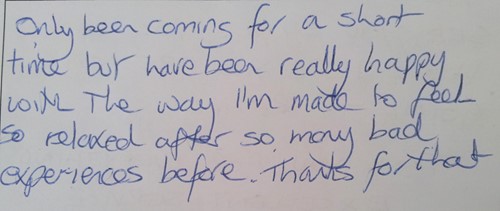 Only been coming for a short
time but have been really happy
with The way I'm made to feel
so relaxed after so many bad
experiences before. Thanks for that